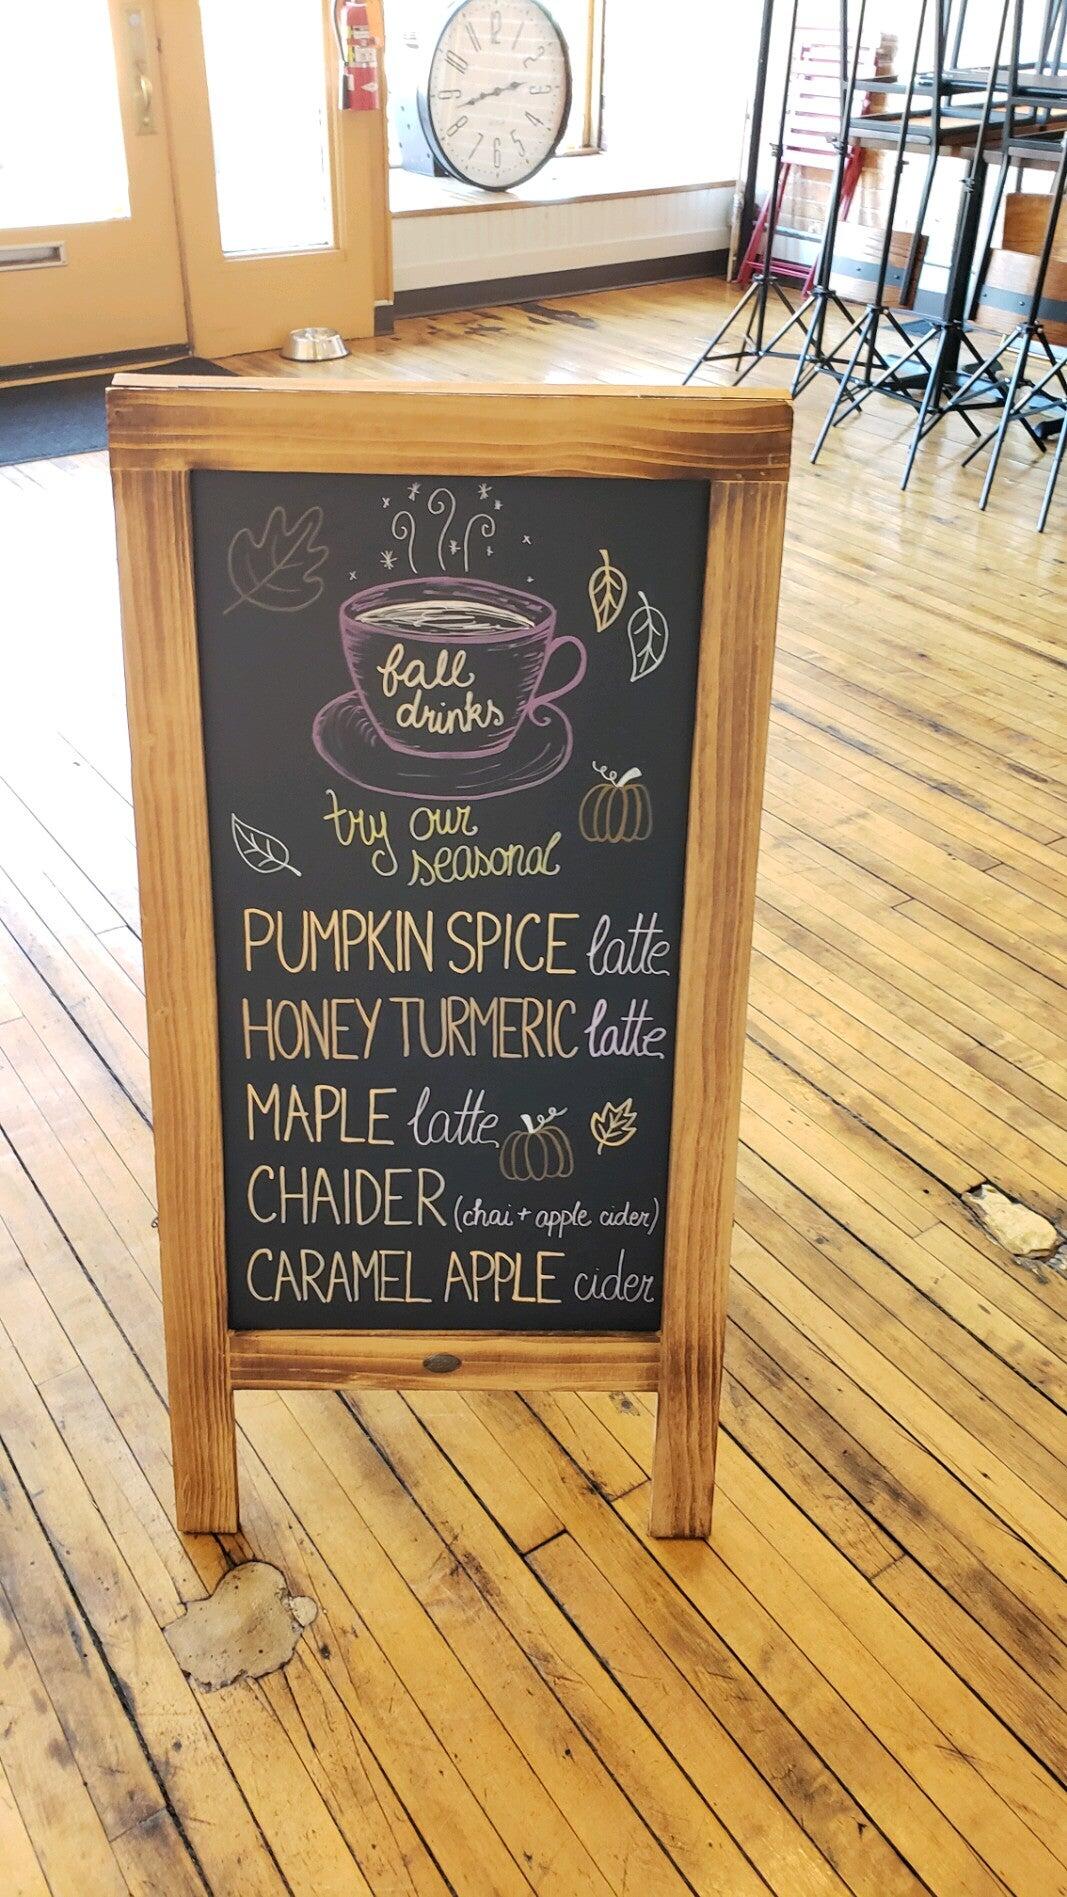 12
3
10
9
3
8
4
7
6
5
fall
drinks
try our
seasonal
PUMPKIN SPICE latte
HONEY TURMERIC latte
MAPLE latte
CHAIDER (chai + apple cider)
CARAMEL APPLE cider